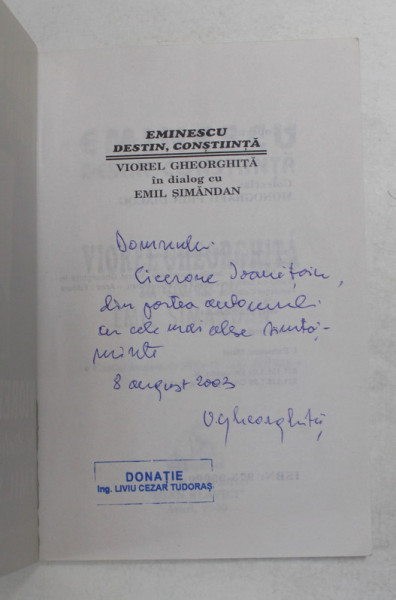 EMINESCU
DESTIN, CONȘTIINȚĂ
VIOREL GHEORGHIȚĂ
în dialog cu
EMIL ȘIMĂNDAN
Domnului
Cicerone Ioanițoiu,
din partea autorului
cu cele mai alese simță-
minte
8 august 2003
VGheorghiță
DONAȚIE
Ing. LIVIU CEZAR TUDORAȘ